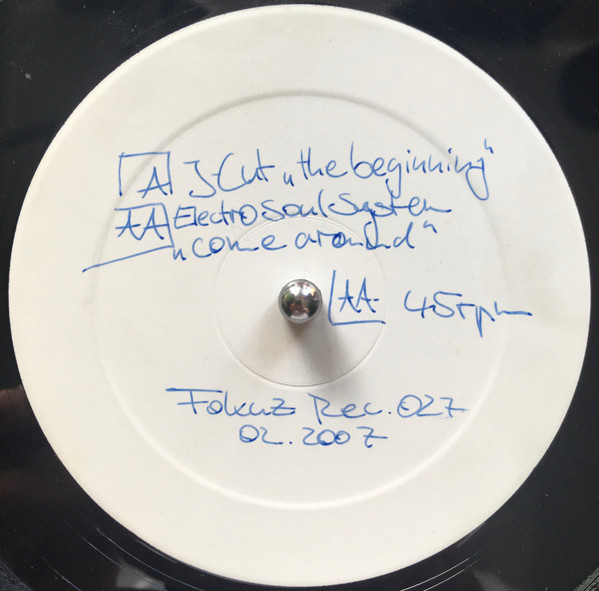 A J-Cut „the beginning"
AA Electro Soul System
„come around"
AA 45rpm
Fokuz Rec. 027
02.2007